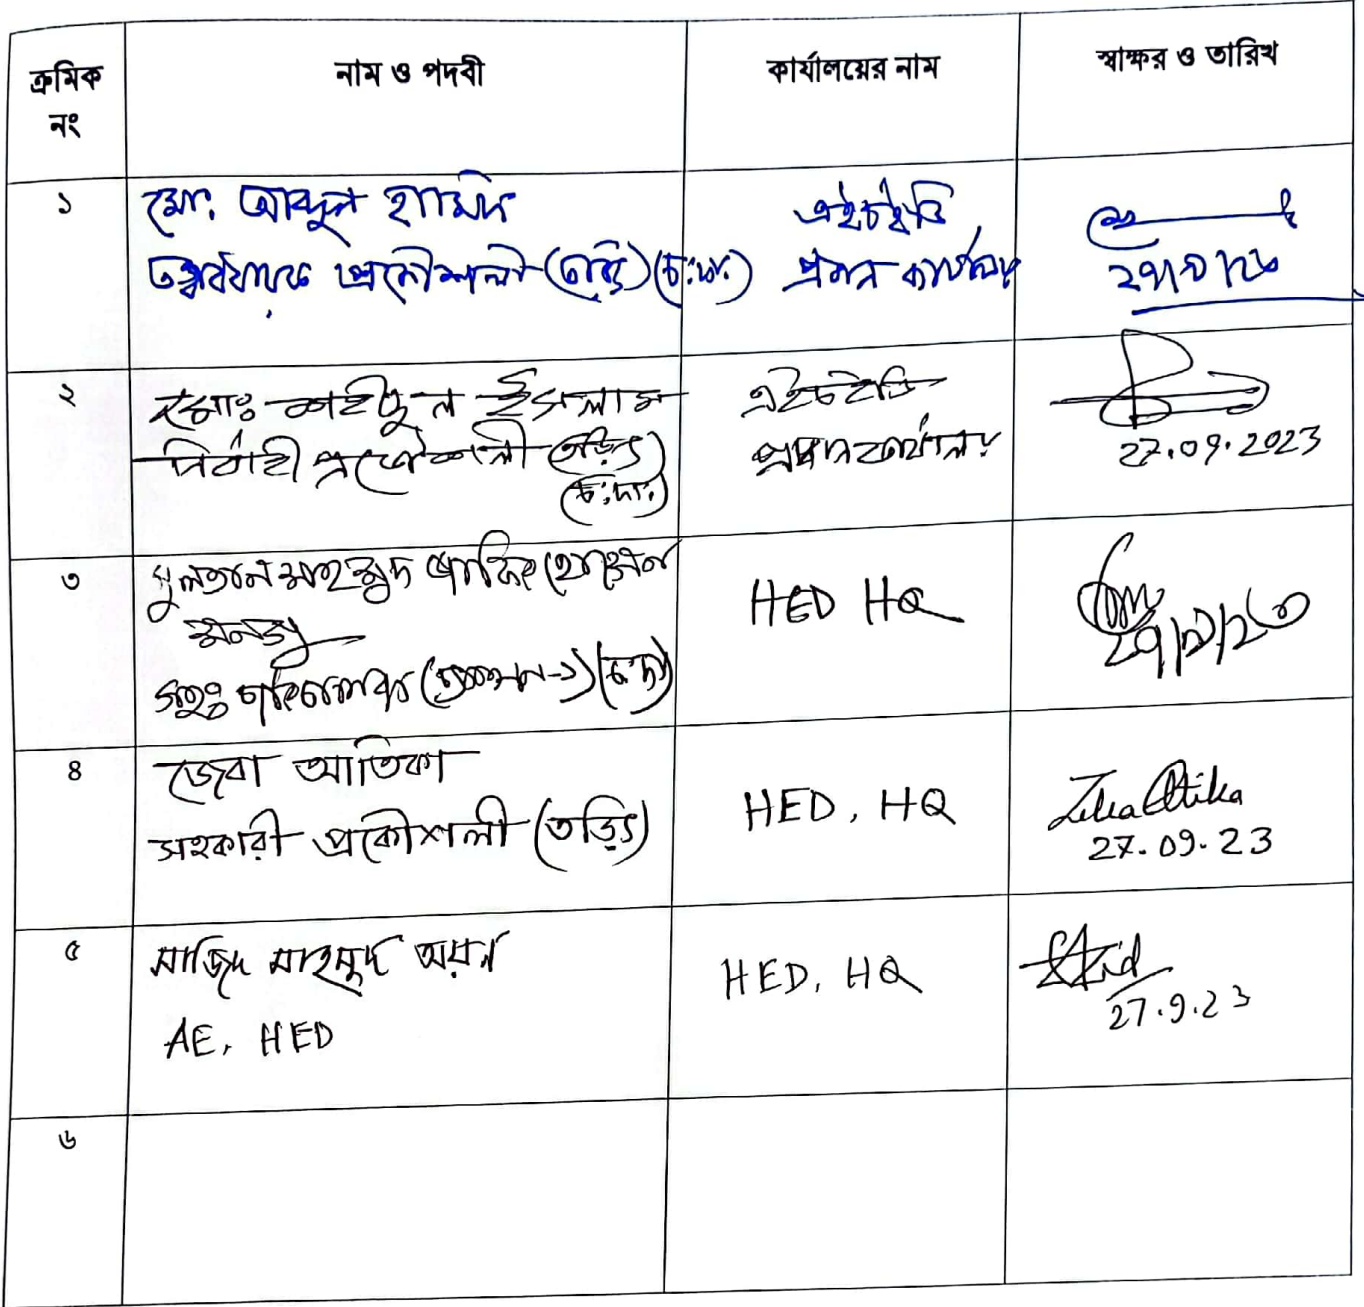 ক্রমিক নং
নাম ও পদবী
কার্যালয়ের নাম
স্বাক্ষর ও তারিখ
১
মো: আব্দুল হামিদ
তত্ত্বাবধায়ক প্রকৌশলী (তড়িৎ) (চ:দা:)
এইচইডি
প্রধান কার্যালয়
২৭/০৯/২৩
২
মোঃ শহীদুল ইসলাম
নির্বাহী প্রকৌশলী (তড়িৎ)
(চ:দা:)
এইচইডি
প্রধান কার্যালয়
27.09.2023
৩
সুলতান মাহমুদ
সহঃ (চ:দা:)
HED HQ
২৭/৯/২৩
৪
জেবা আতিকা
সহকারী প্রকৌশলী (তড়িৎ)
HED, HQ
Zeba Atika
27.09.23
৫
সাজিদ মাহমুদ অয়ন
AE, HED
HED, HQ
27.9.23
৬